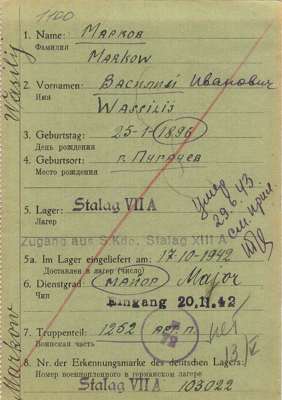 1100
1. Name: Марков
Фамилия
Markow
2. Vornamen: Василий Иванович
Имя
Wassilis
3. Geburtstag: 25-1-1896
День рождения
4. Geburtsort: г. Пугачев
Место рождения
5. Lager: Stalag VII A
Лагерь
Zugang aus S.Kdo. Stalag XIII A
5a. Im Lager eingeliefert am: 17.10-1942
Доставлен в лагерь (число)
6. Dienstgrad МАЙОР Major
Чин
Eingang 20.11.42
7. Truppenteil: 1252 арт. п.
Воинская часть
8. Nr. der Erkennungsmarke des deutschen Lagers:
Номер военнопленного в германском лагере
Stalag VII A 103022
Умер
29.6.43
см. прил.
13/V
Markow Wasily